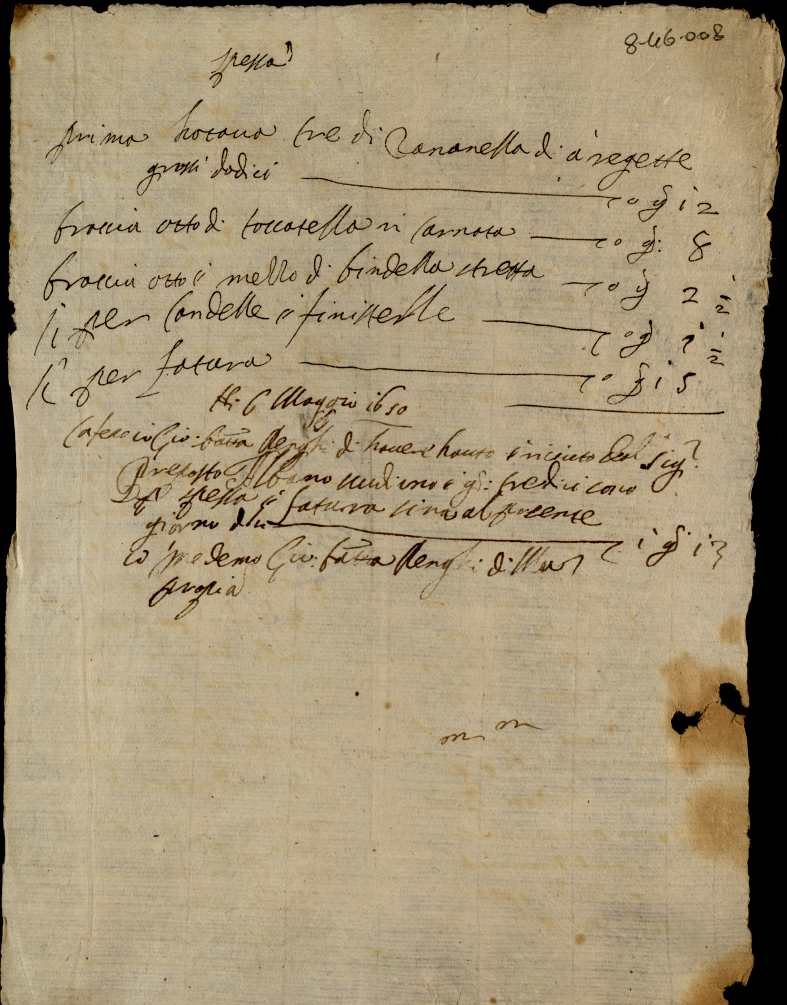 8-46-008
spessa
prima hotava tre di Zananella di a regette
grossi dodici — co g 12
braccia otto di toccatella in carnata — co g: 8
braccia otto e mezzo di bindella stretta — co g 2 ½
It per Candelle e finistelle — co g 1 ½
It per fatura — co g 15
Adi 6 Maggio 1650
Confesso io Gio: batta Renghi di havere hauto e riceuto dal Sig.r
Preposto Albano scudi uno e g: tredici sono
per spessa e fatura sino al presente
giorno dico — c 1 g 13
io sopredemo Gio: batta Renghi di Man
propia